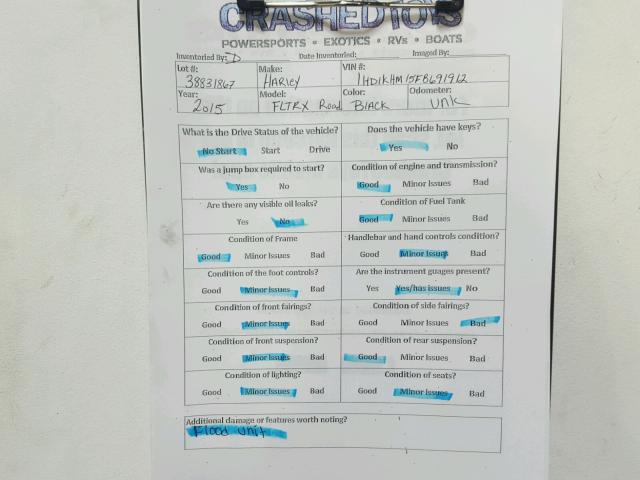 CRASHEDTOYS
POWERSPORTS • EXOTICS • RVs • BOATS
Inventoried By: D Date Inventoried: Imaged By:
Lot #: 38831867 Make: HARLEY VIN #: 1HD1KHM15FB691912
Year: 2015 Model: FLTRX Road Color: BLACK Odometer: UNK
What is the Drive Status of the vehicle? Does the vehicle have keys?
No Start Start Drive Yes No
Was a jump box required to start? Condition of engine and transmission?
Yes No Good Minor Issues Bad
Are there any visible oil leaks? Condition of Fuel Tank
Yes No Good Minor Issues Bad
Condition of Frame Handlebar and hand controls condition?
Good Minor Issues Bad Good Minor Issues Bad
Condition of the foot controls? Are the instrument guages present?
Good Minor Issues Bad Yes Yes/has issues No
Condition of front fairings? Condition of side fairings?
Good Minor Issues Bad Good Minor Issues Bad
Condition of front suspension? Condition of rear suspension?
Good Minor Issues Bad Good Minor Issues Bad
Condition of lighting? Condition of seats?
Good Minor Issues Bad Good Minor Issues Bad
Additional damage or features worth noting?
Flood unit